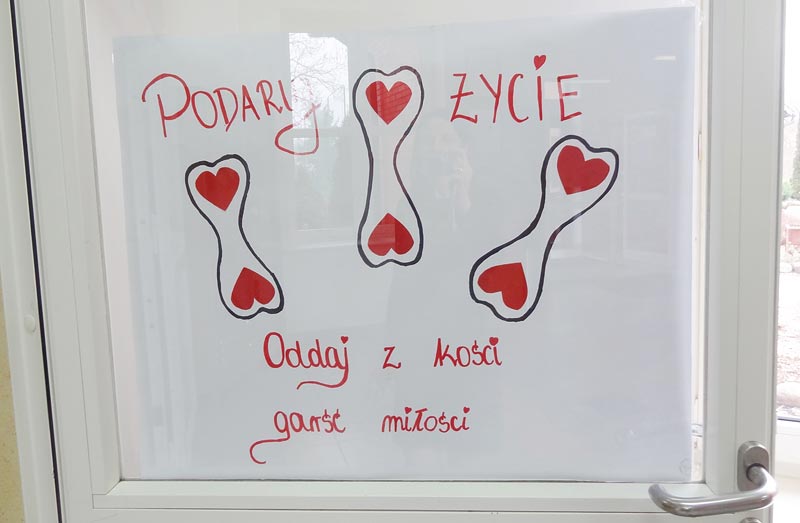 PODARUJ ŻYCIE
Oddaj z kości
garść miłości